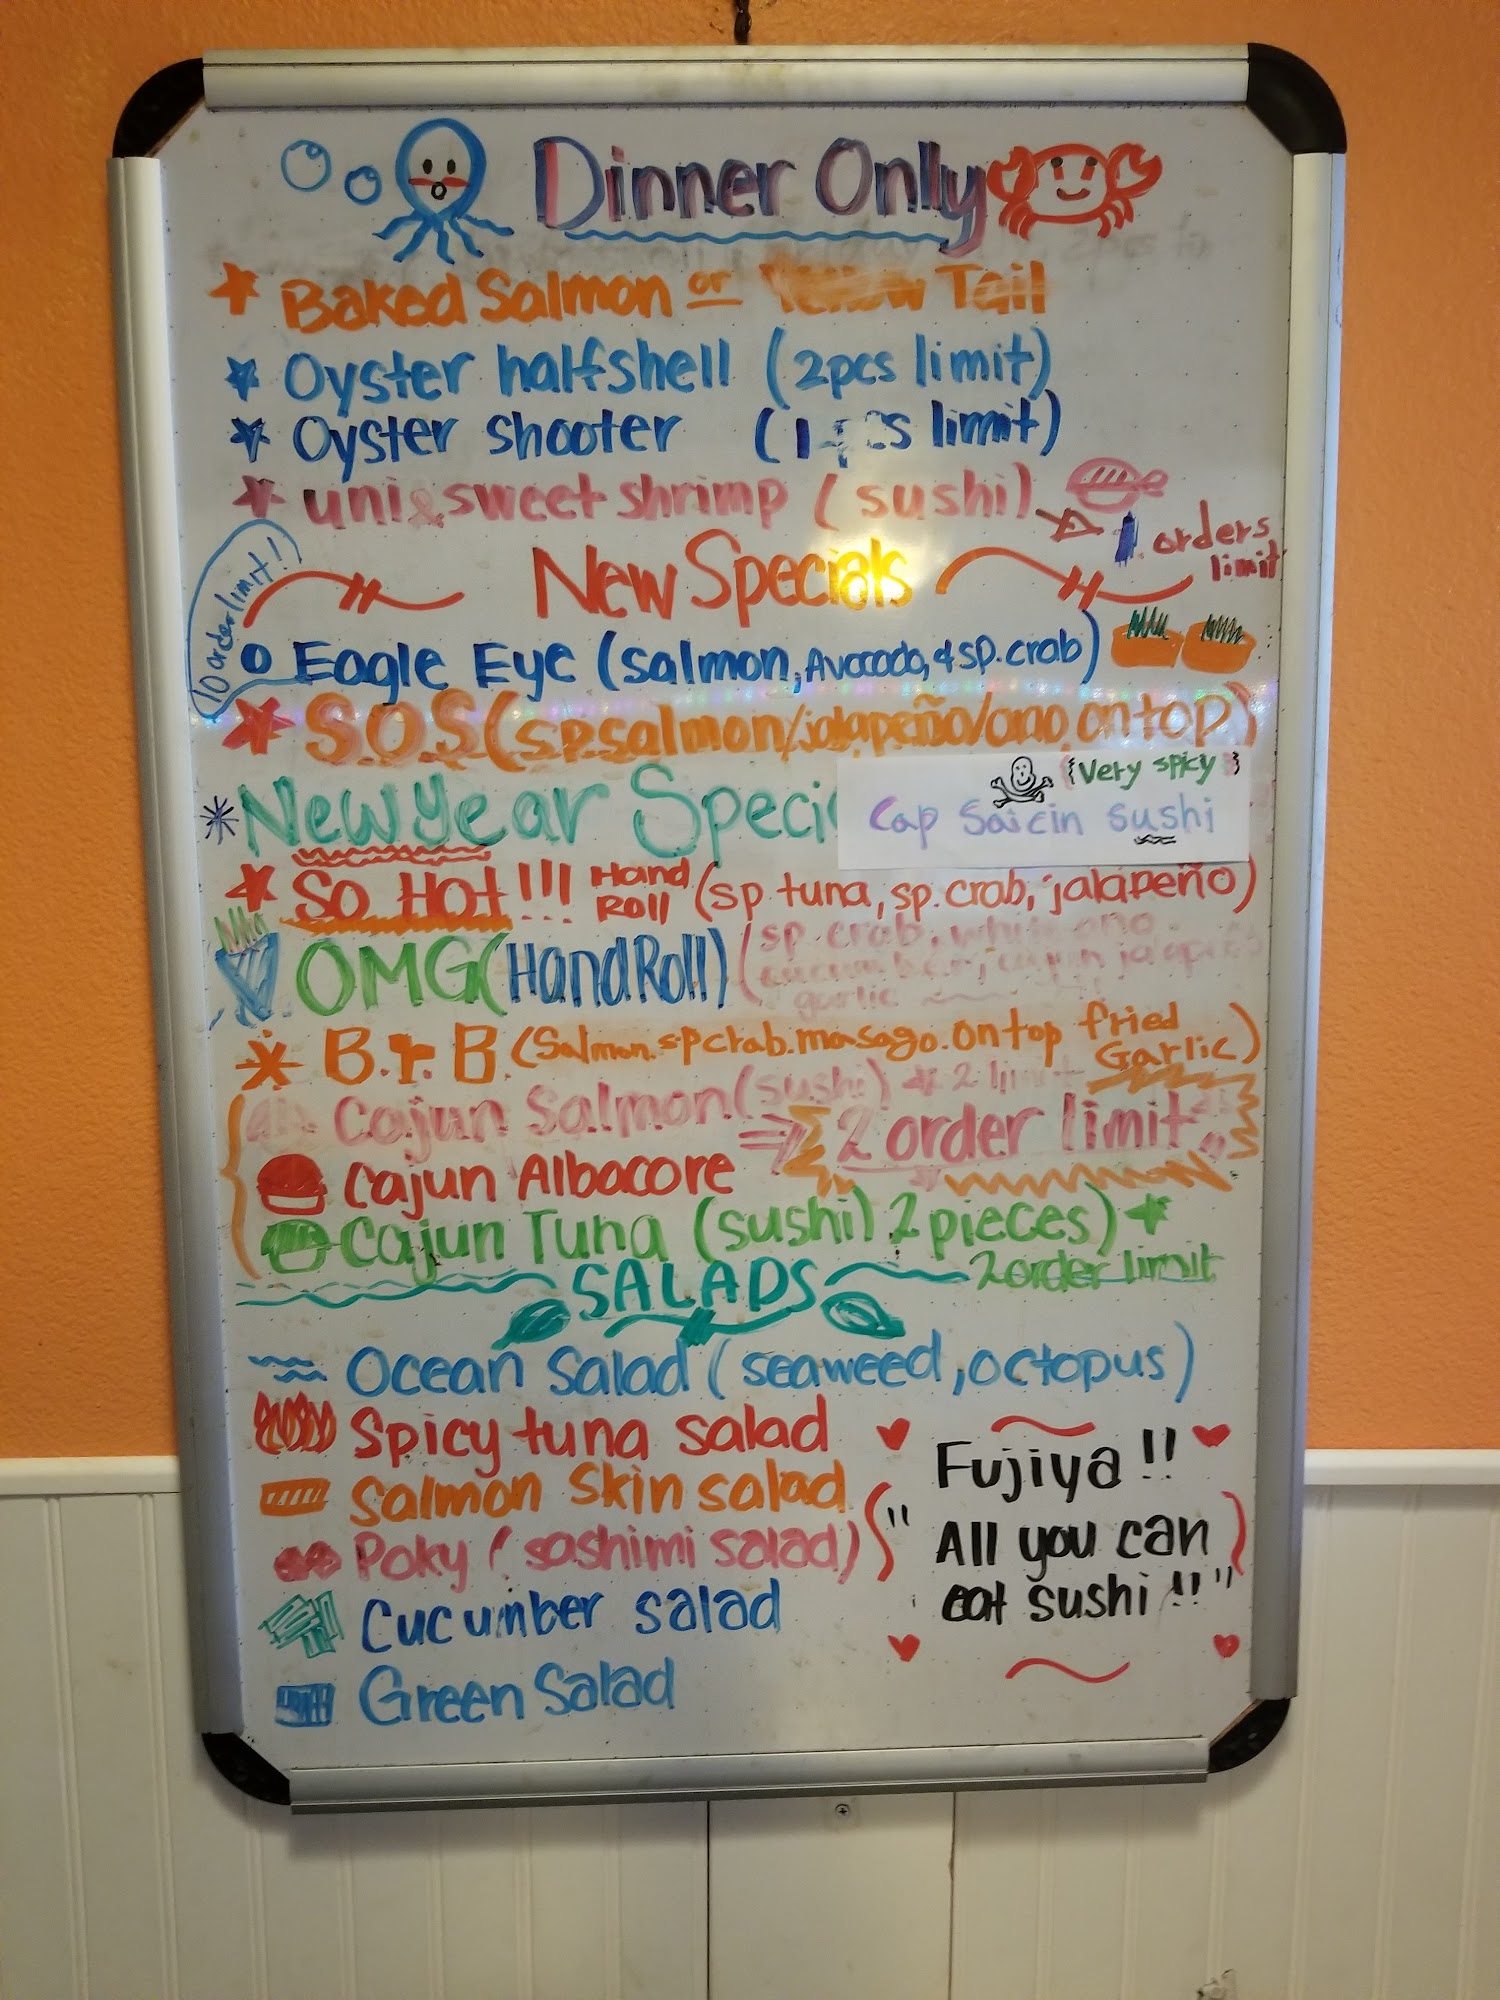 Dinner Only
Baked Salmon or Yellow Tail
Oyster halfshell (2pcs limit)
Oyster shooter (1 pcs limit)
uni & sweet shrimp (sushi)
1 orders
limit
New Specials
10 order limit!
Eagle Eye (salmon, Avocado, & sp. crab)
S.O.S (sp.salmon/jalapeño/ono on top)
{Very spicy}
New Year Speci
Cap Saicin sushi
So Hot!!! Hand Roll (sp tuna, sp. crab, jalapeño)
OMG (Hand Roll) (sp. crab, white ono
garlic
B.r.B. (Salmon. spcrab. masago. on top fried
Garlic)
Cajun Salmon (sushi) 2 limit
2 order limit
Cajun Albacore
Cajun Tuna (sushi) 2 pieces)
2 order limit
SALADS
Ocean Salad (seaweed, octopus)
Spicy tuna salad
Salmon Skin salad
Poky (sashimi salad)
Cucumber salad
Green Salad
Fujiya!!
"All you can
eat sushi!!"